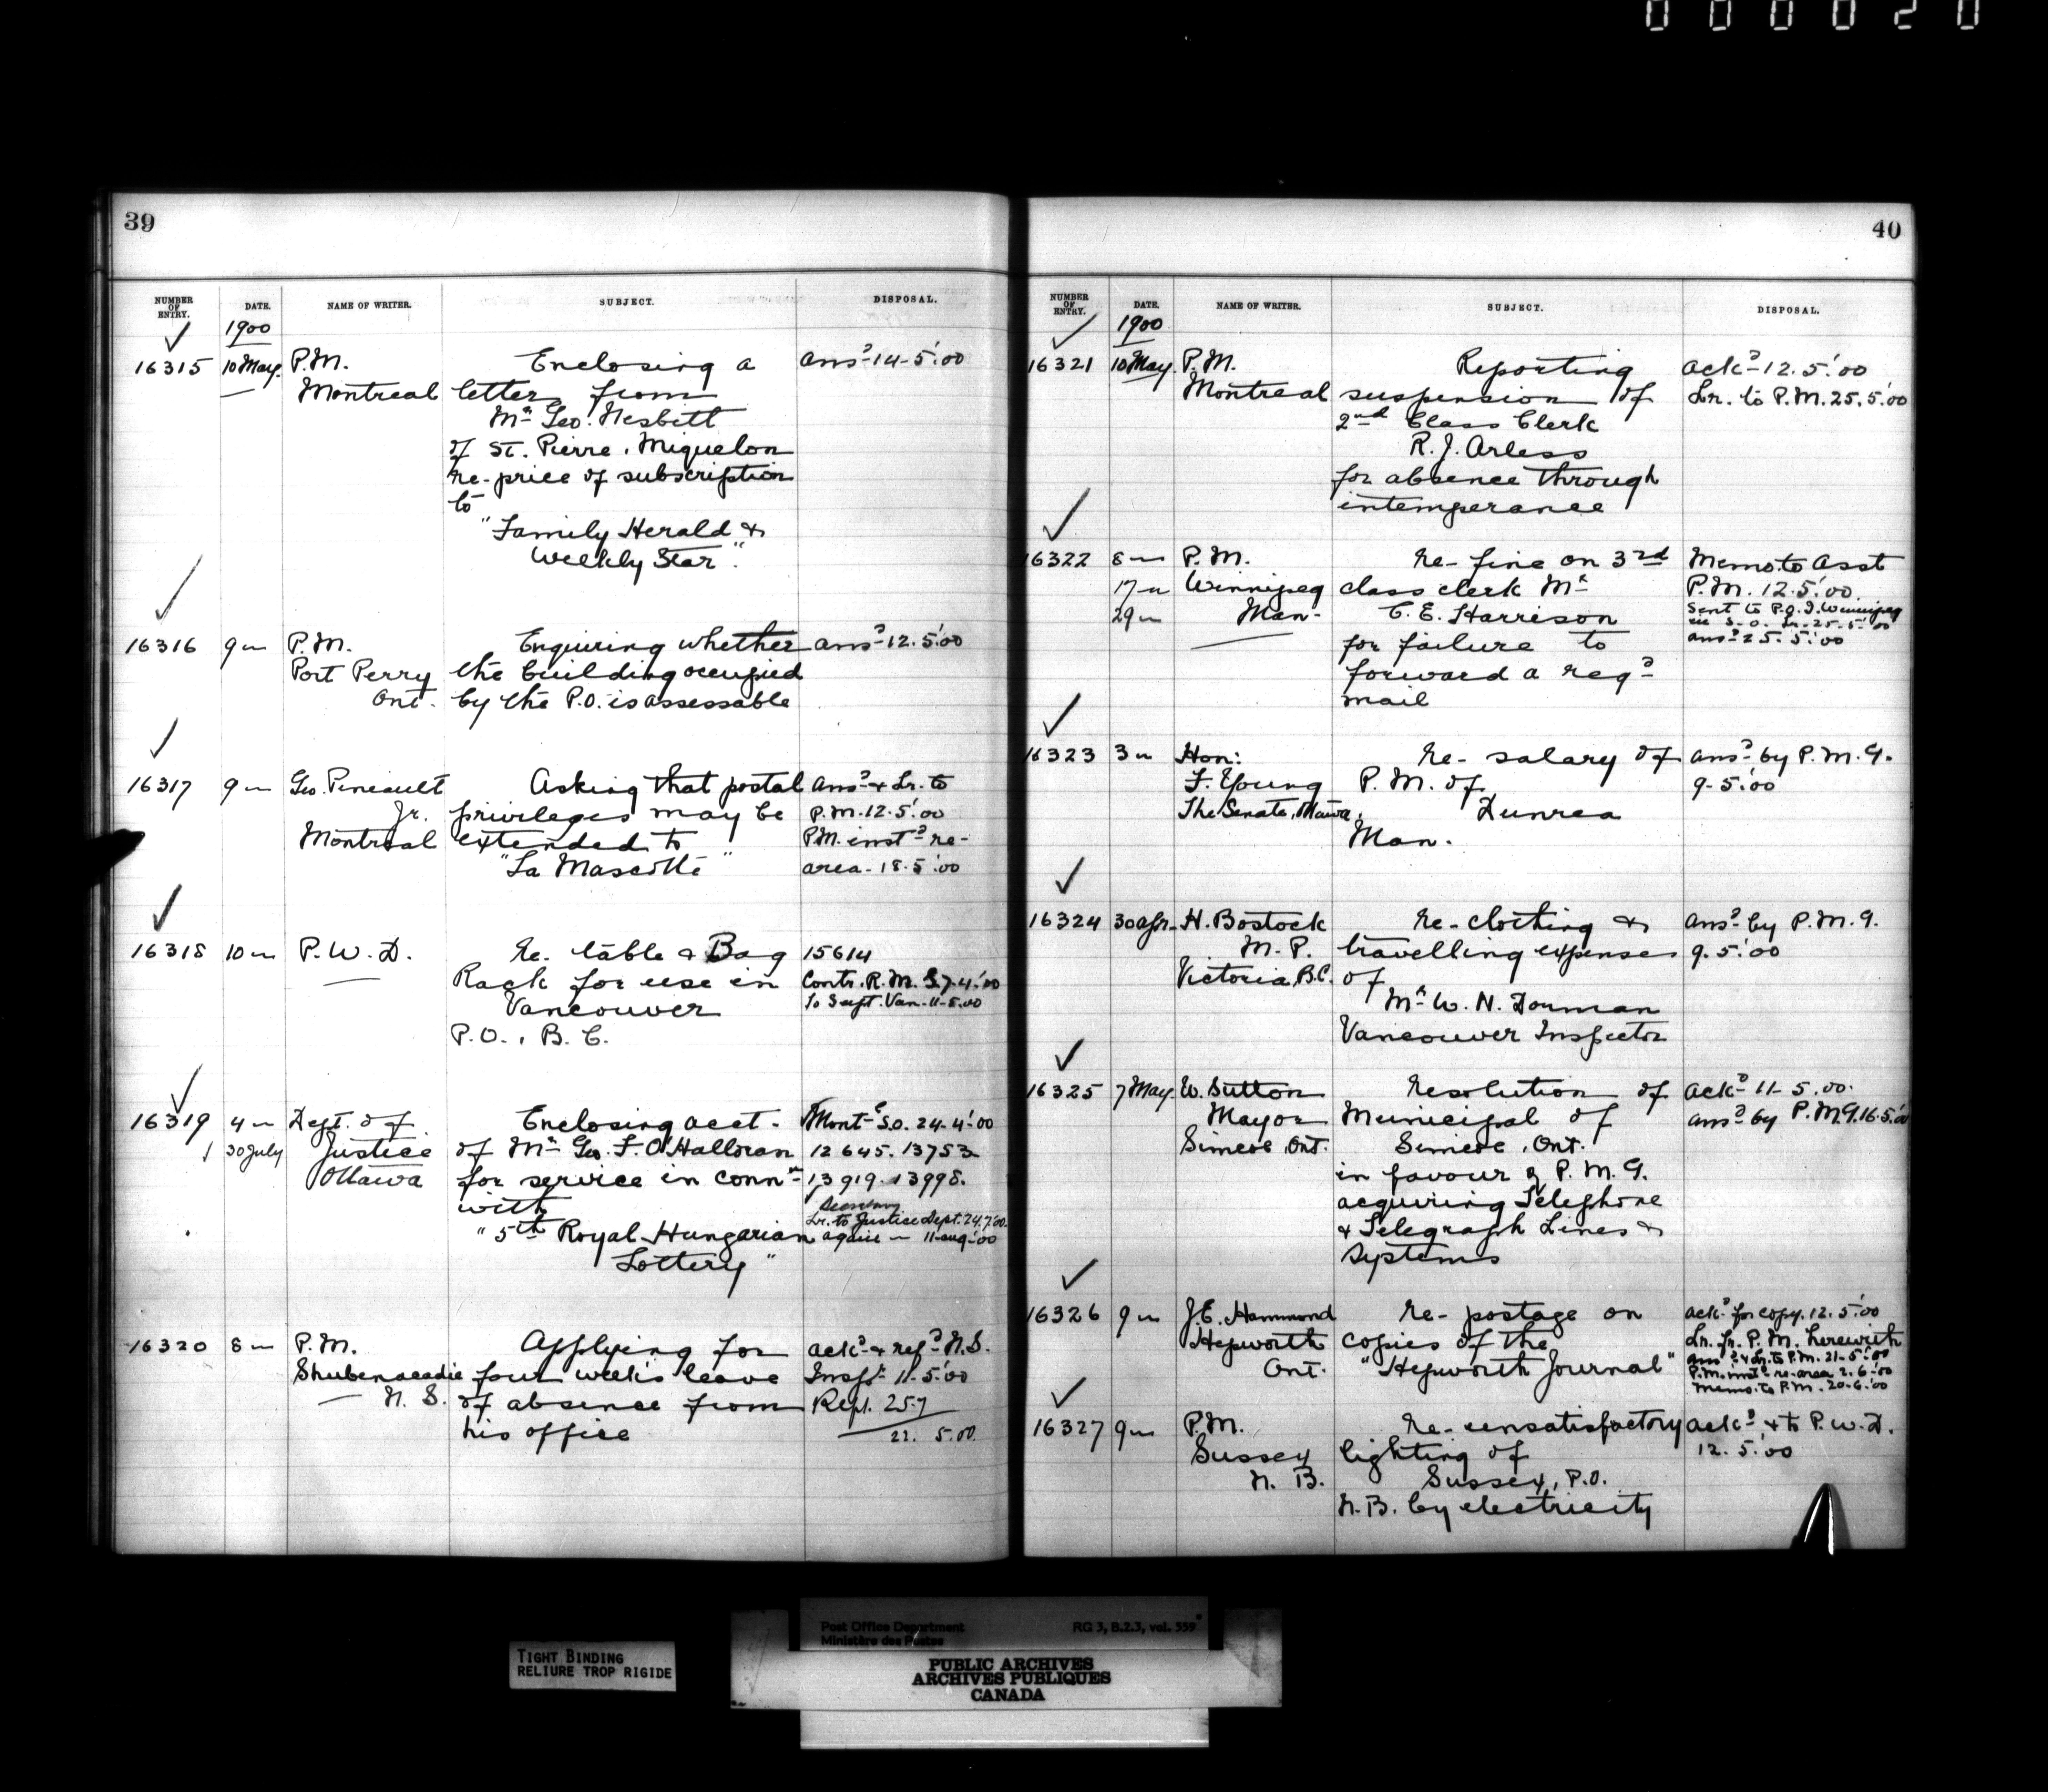 000020
39
NUMBER OF ENTRY. DATE. NAME OF WRITER. SUBJECT. DISPOSAL.
1900
16315 10 May. P.M. Enclosing a ansd 14-5.'00
Montreal letter from
Mr Geo. Nesbitt
of St. Pierre, Miquelon
re- price of subscription
to
"Family Herald &
Weekly Star".
16316 9 " P.M. Enquiring whether ansd 12.5.'00
Port Perry the building occupied
Ont. by the P.O. is assessable
16317 9 " Geo. Pineault Asking that postal ansd & Lr. to
Jr. privileges may be P.M. 12.5.'00
Montreal extended to P.M. instd re-
"La Mascotte" area- 18.5.'00
16318 10 " P.W.D. Re- table & Bag 15614
Rack for use in Contr. R.M.S. 7.4.'00
Vancouver To Supt. Van. 11-5.00
P.O., B.C.
16319 4 " Dept. of Enclosing acct. S.O. 24-4.'00
30 July Justice of Mr Geo. F. O'Halloran 12645. 13753
Ottawa for service in connn 13919. 13998.
with
Lr. to Justice Dept. 24.7.'00
"5th Royal Hungarian again " 11-aug.'00
Lottery"
16320 8 " P.M. Applying for ackd & refd N.S.
Shubenacadie four weeks leave Inspr 11-5.'00
N.S. of absence from Rept. 257
his office 22. 5.00.
40
NUMBER OF ENTRY. DATE. NAME OF WRITER. SUBJECT. DISPOSAL.
1900
16321 10 May P.M. Reporting ackd 12.5.'00
Montreal suspension of Lr. to P.M. 25.5.'00
2nd Class Clerk
R.J. Arless
for absence through
intemperance
16322 8 " P.M. Re- fine on 3rd Memo. to Asst
17 " Winnipeg class clerk Mr P.M. 12.5.'00.
29 " Man- C.E. Harrison Sent to P.O.I. Winnipeg
in S.O. Lr. 25.5.'00
for failure to ansd 25.5.'00
forward a regd
mail
16323 3 " Hon: Re- salary of ansd by P.M.G.
F. Young P.M. of 9-5.'00
The Senate, Ottawa. Dunrea
Man.
16324 30 Apr. H. Bostock Re- clothing & ansd by P.M.G.
M.P. travelling expenses 9.5.'00
Victoria, B.C. of
Mr W.H. Dorman
Vancouver Inspector
16325 7 May W. Sutton Resolution of ackd 11-5.00.
Mayor Municipal of ansd by P.M.G. 16.5.'00
Simcoe, Ont. Simcoe, Ont.
in favour of P.M.G.
acquiring Telephone
& Telegraph Lines &
Systems
16326 9 " J.E. Hammond Re- postage on ackd for copy. 12.5.'00
Hepworth copies of the Lr. fr. P.M. herewith
Ont. "Hepworth Journal" ansd & Lr. to P.M. 21-5.'00
P.M. instd re-area 2.6.'00
Memo. to P.M. 20-6.'00
16327 9 " P.M. Re- unsatisfactory ackd & to P.W.D.
Sussex lighting of 12.5.'00
N.B. Sussex, P.O.
N.B. by electricity
Post Office Department RG 3, B.2.3, vol. 359
Ministère des Postes
TIGHT BINDING
RELIURE TROP RIGIDE
PUBLIC ARCHIVES
ARCHIVES PUBLIQUES
CANADA